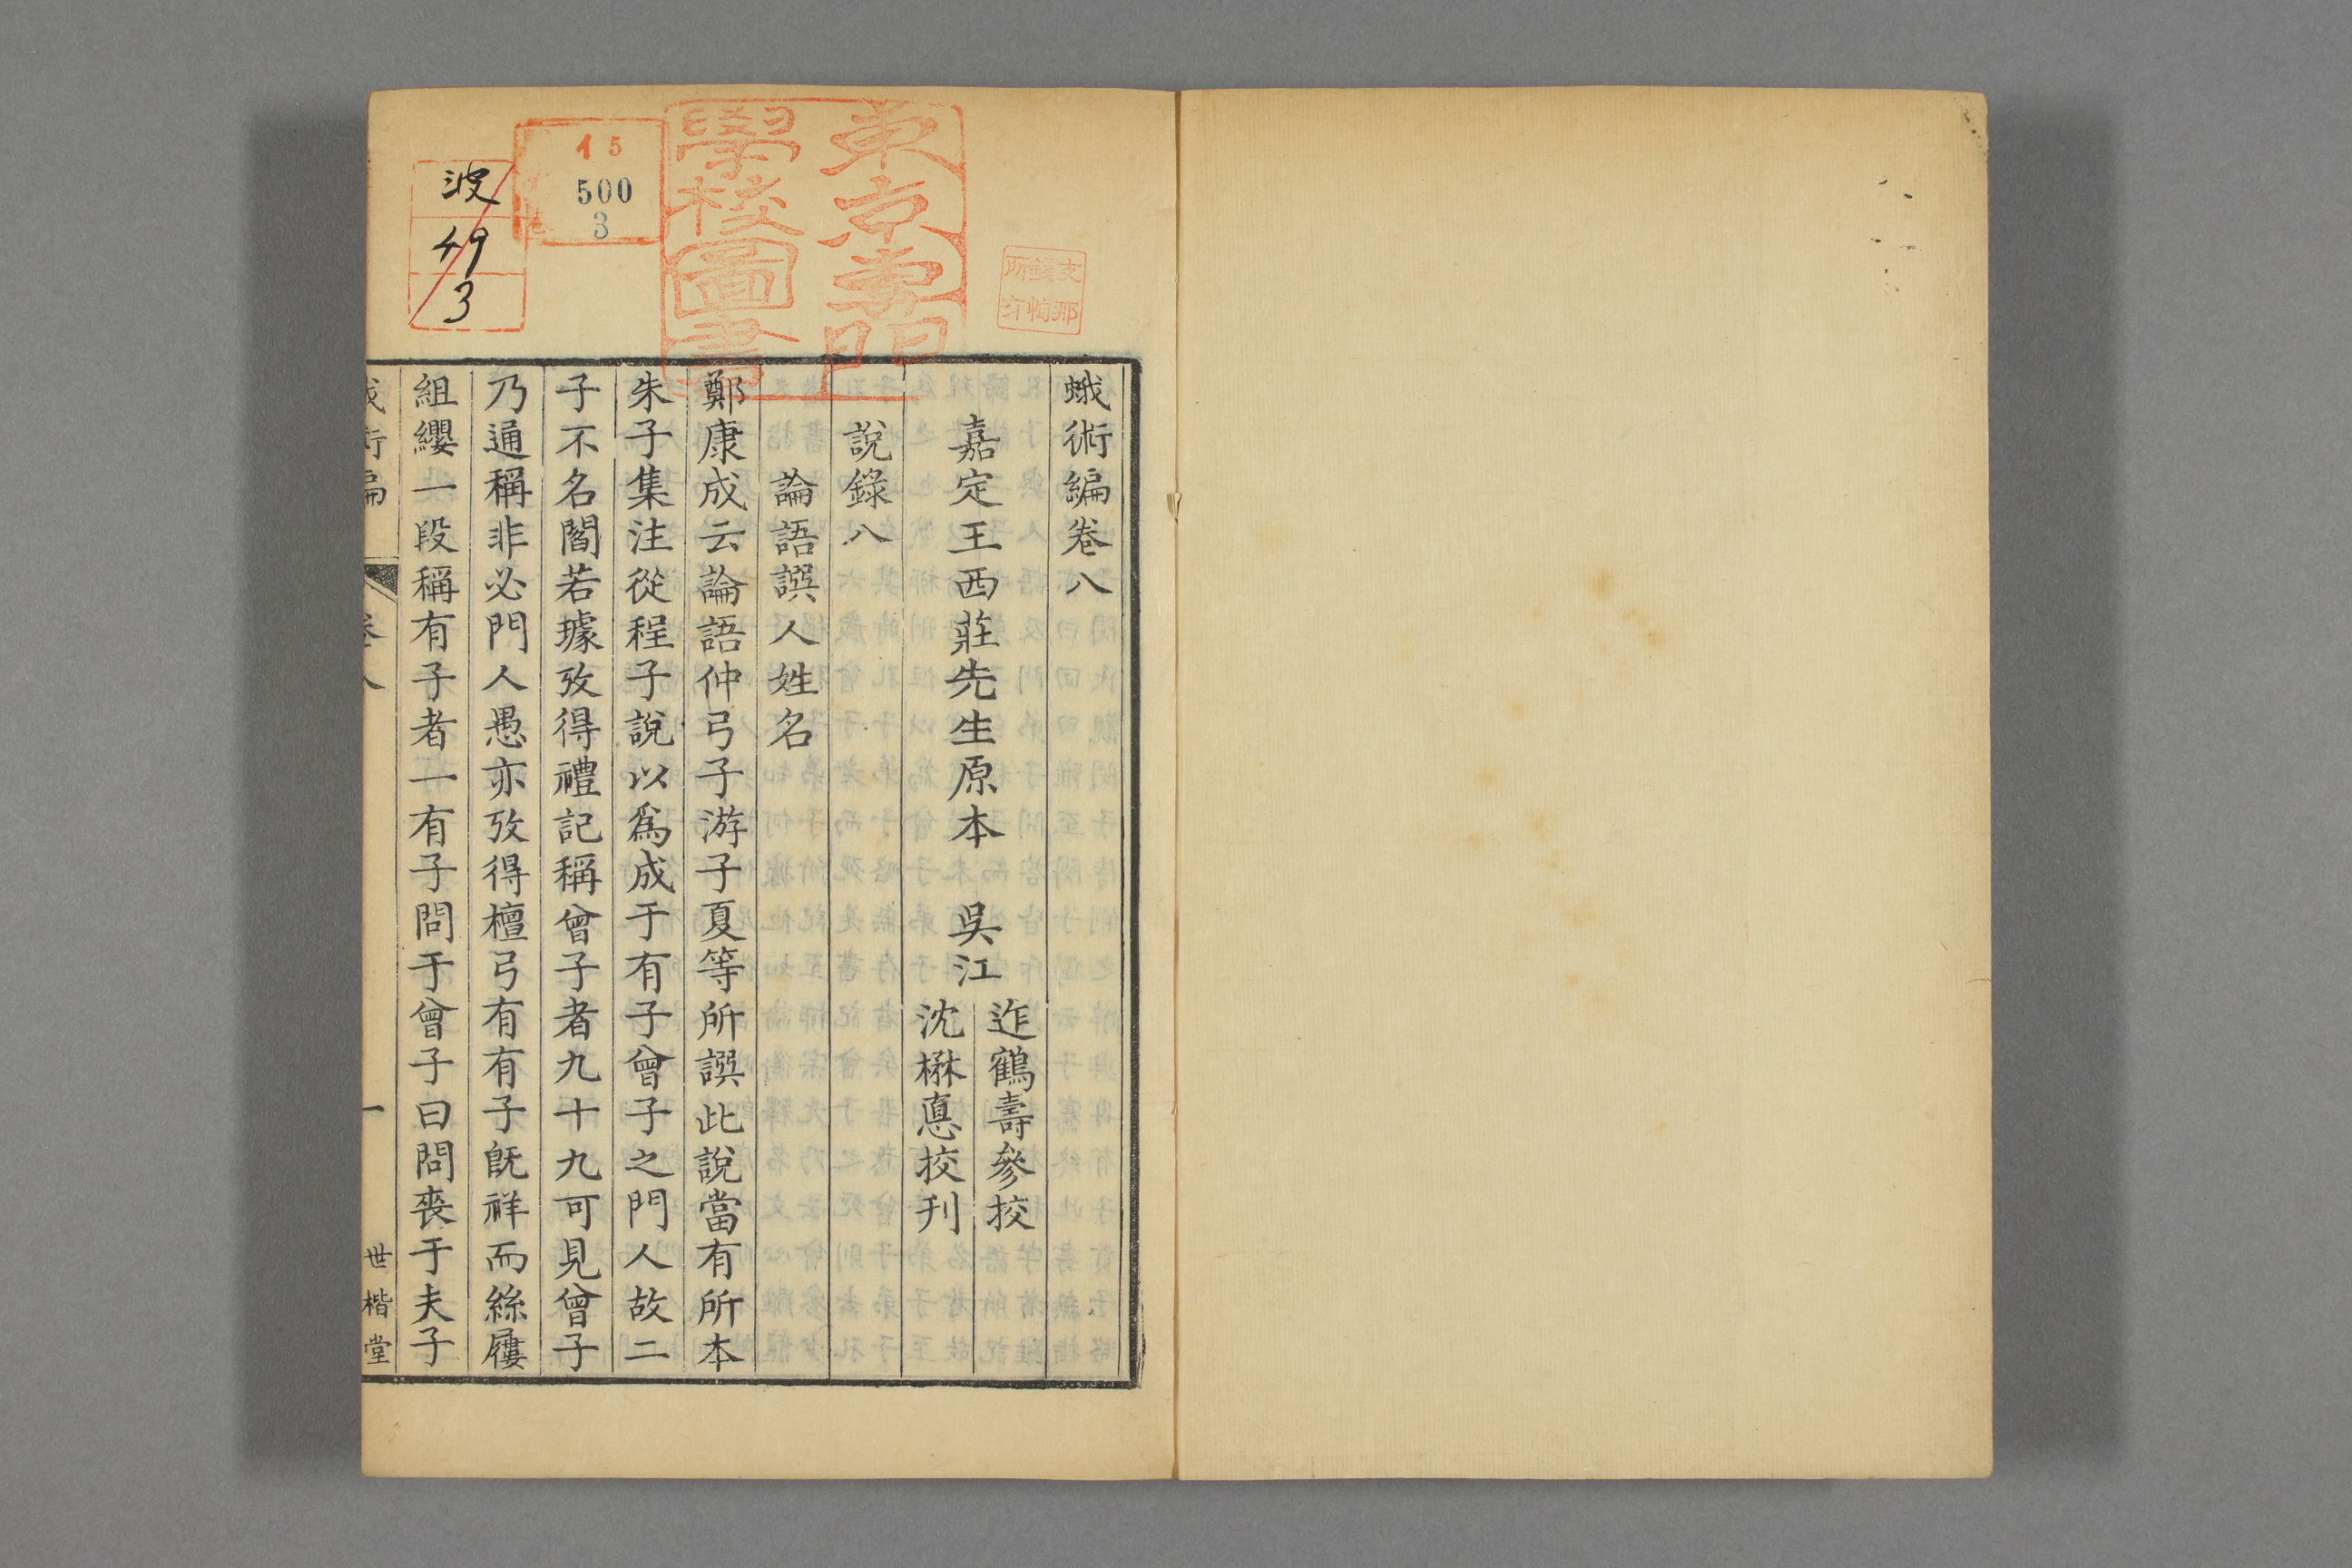 蛾術編卷八
嘉定王西莊先生原本　吳江
迮鶴壽參挍
沈楙悳挍刊
說錄八
論語譔人姓名
鄭康成云論語仲弓子游子夏等所譔此說當有所本
朱子集注從程子說以爲成于有子曾子之門人故二
子不名閻若璩攷得禮記稱曾子者九十九可見曾子
乃通稱非必門人愚亦攷得檀弓有有子旣祥而絲屨
組纓一段稱有子者一有子問于曾子曰問喪于夫子
蛾術編　卷八　一　世楷堂
東京專門
學校圖書
15
500
3
波
49
3